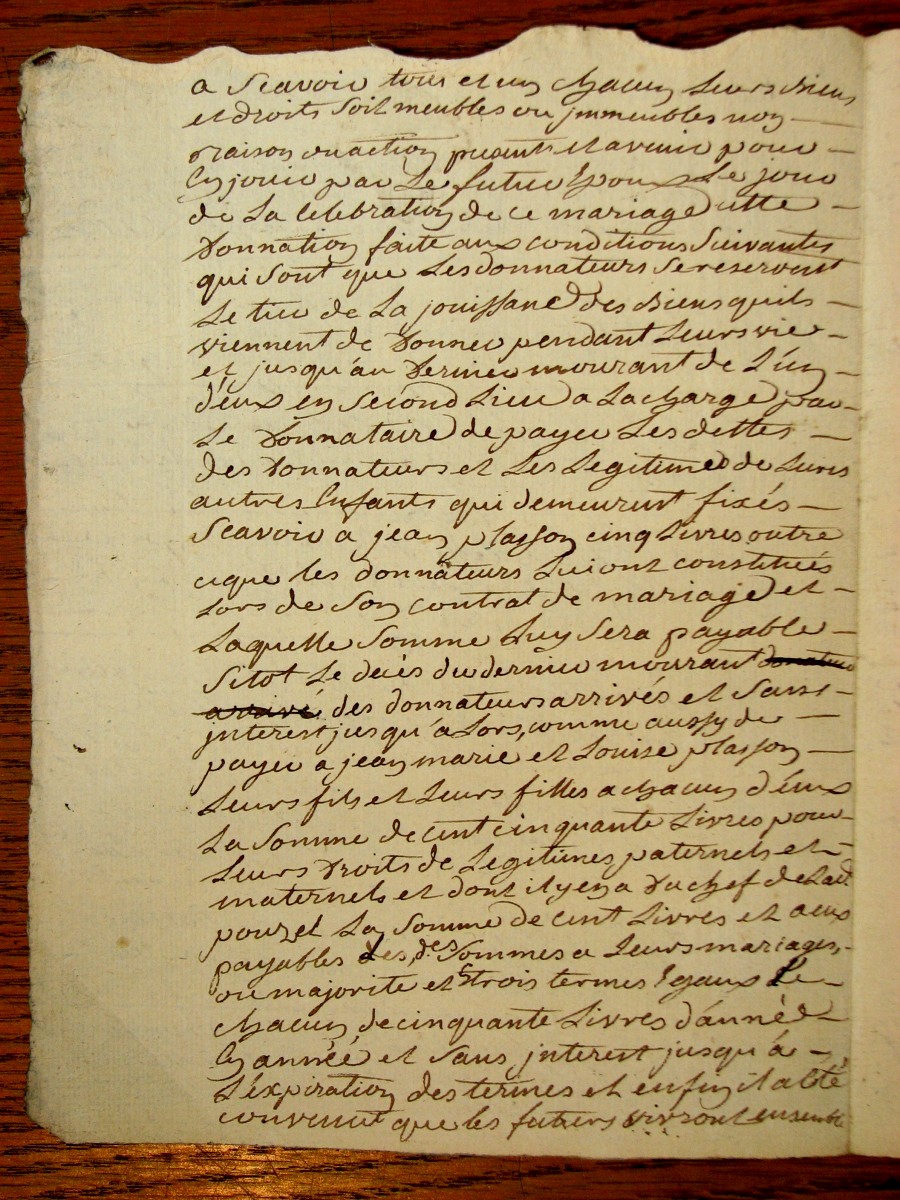 a Scavoir tous et un chacun Leurs Biens
et droits Soit meubles ou jmmeubles nom
raison ou action presents et avenir pour
En jouir par Le futur Epoux Le jour
de La Celebration de ce mariage cette
Donnation faite aux conditions Suivantes
qui Sont que Les donnateurs Se reservent
Le de La jouissance des Biens quils
viennent de Donner pendant Leurs vie
et jusqu'au Dernier mourant de L'un
d'eux en Second Lieu a La charge par
Le Donnataire de payer Les dettes
des Donnateurs et Les Legitimes de Leurs
autres Enfants qui demeurent fixés
Scavoir a jean plasson cinq Livres outre
ceque les donnateurs Lui ont constitués
Lors de Son contrat de mariage et
Laquelle Somme Luy Sera payable
Sitot Le decés du dernier mourant
des donnateurs arrivés et Sans
jnterest jusqu'a Lors, comme aussy de
payer a jean marie et Louise plasson
Leurs fils et Leurs filles a chacun d'eux
La Somme de cent cinquante Livres pour
Leurs Droits de Legitimes paternels et
maternels et dont il y en a Du chef de Lad
pouzet La Somme de cent Livres et a eux
payables Les des Sommes a Leurs mariages,
ou majorite et trois termes Egaux De
chacun de cinquante Livres d'année
En année et Sans jnterest jusqu'a
L'expiration des termes et enfin il a été
convenut que les futurs vivront ensemble